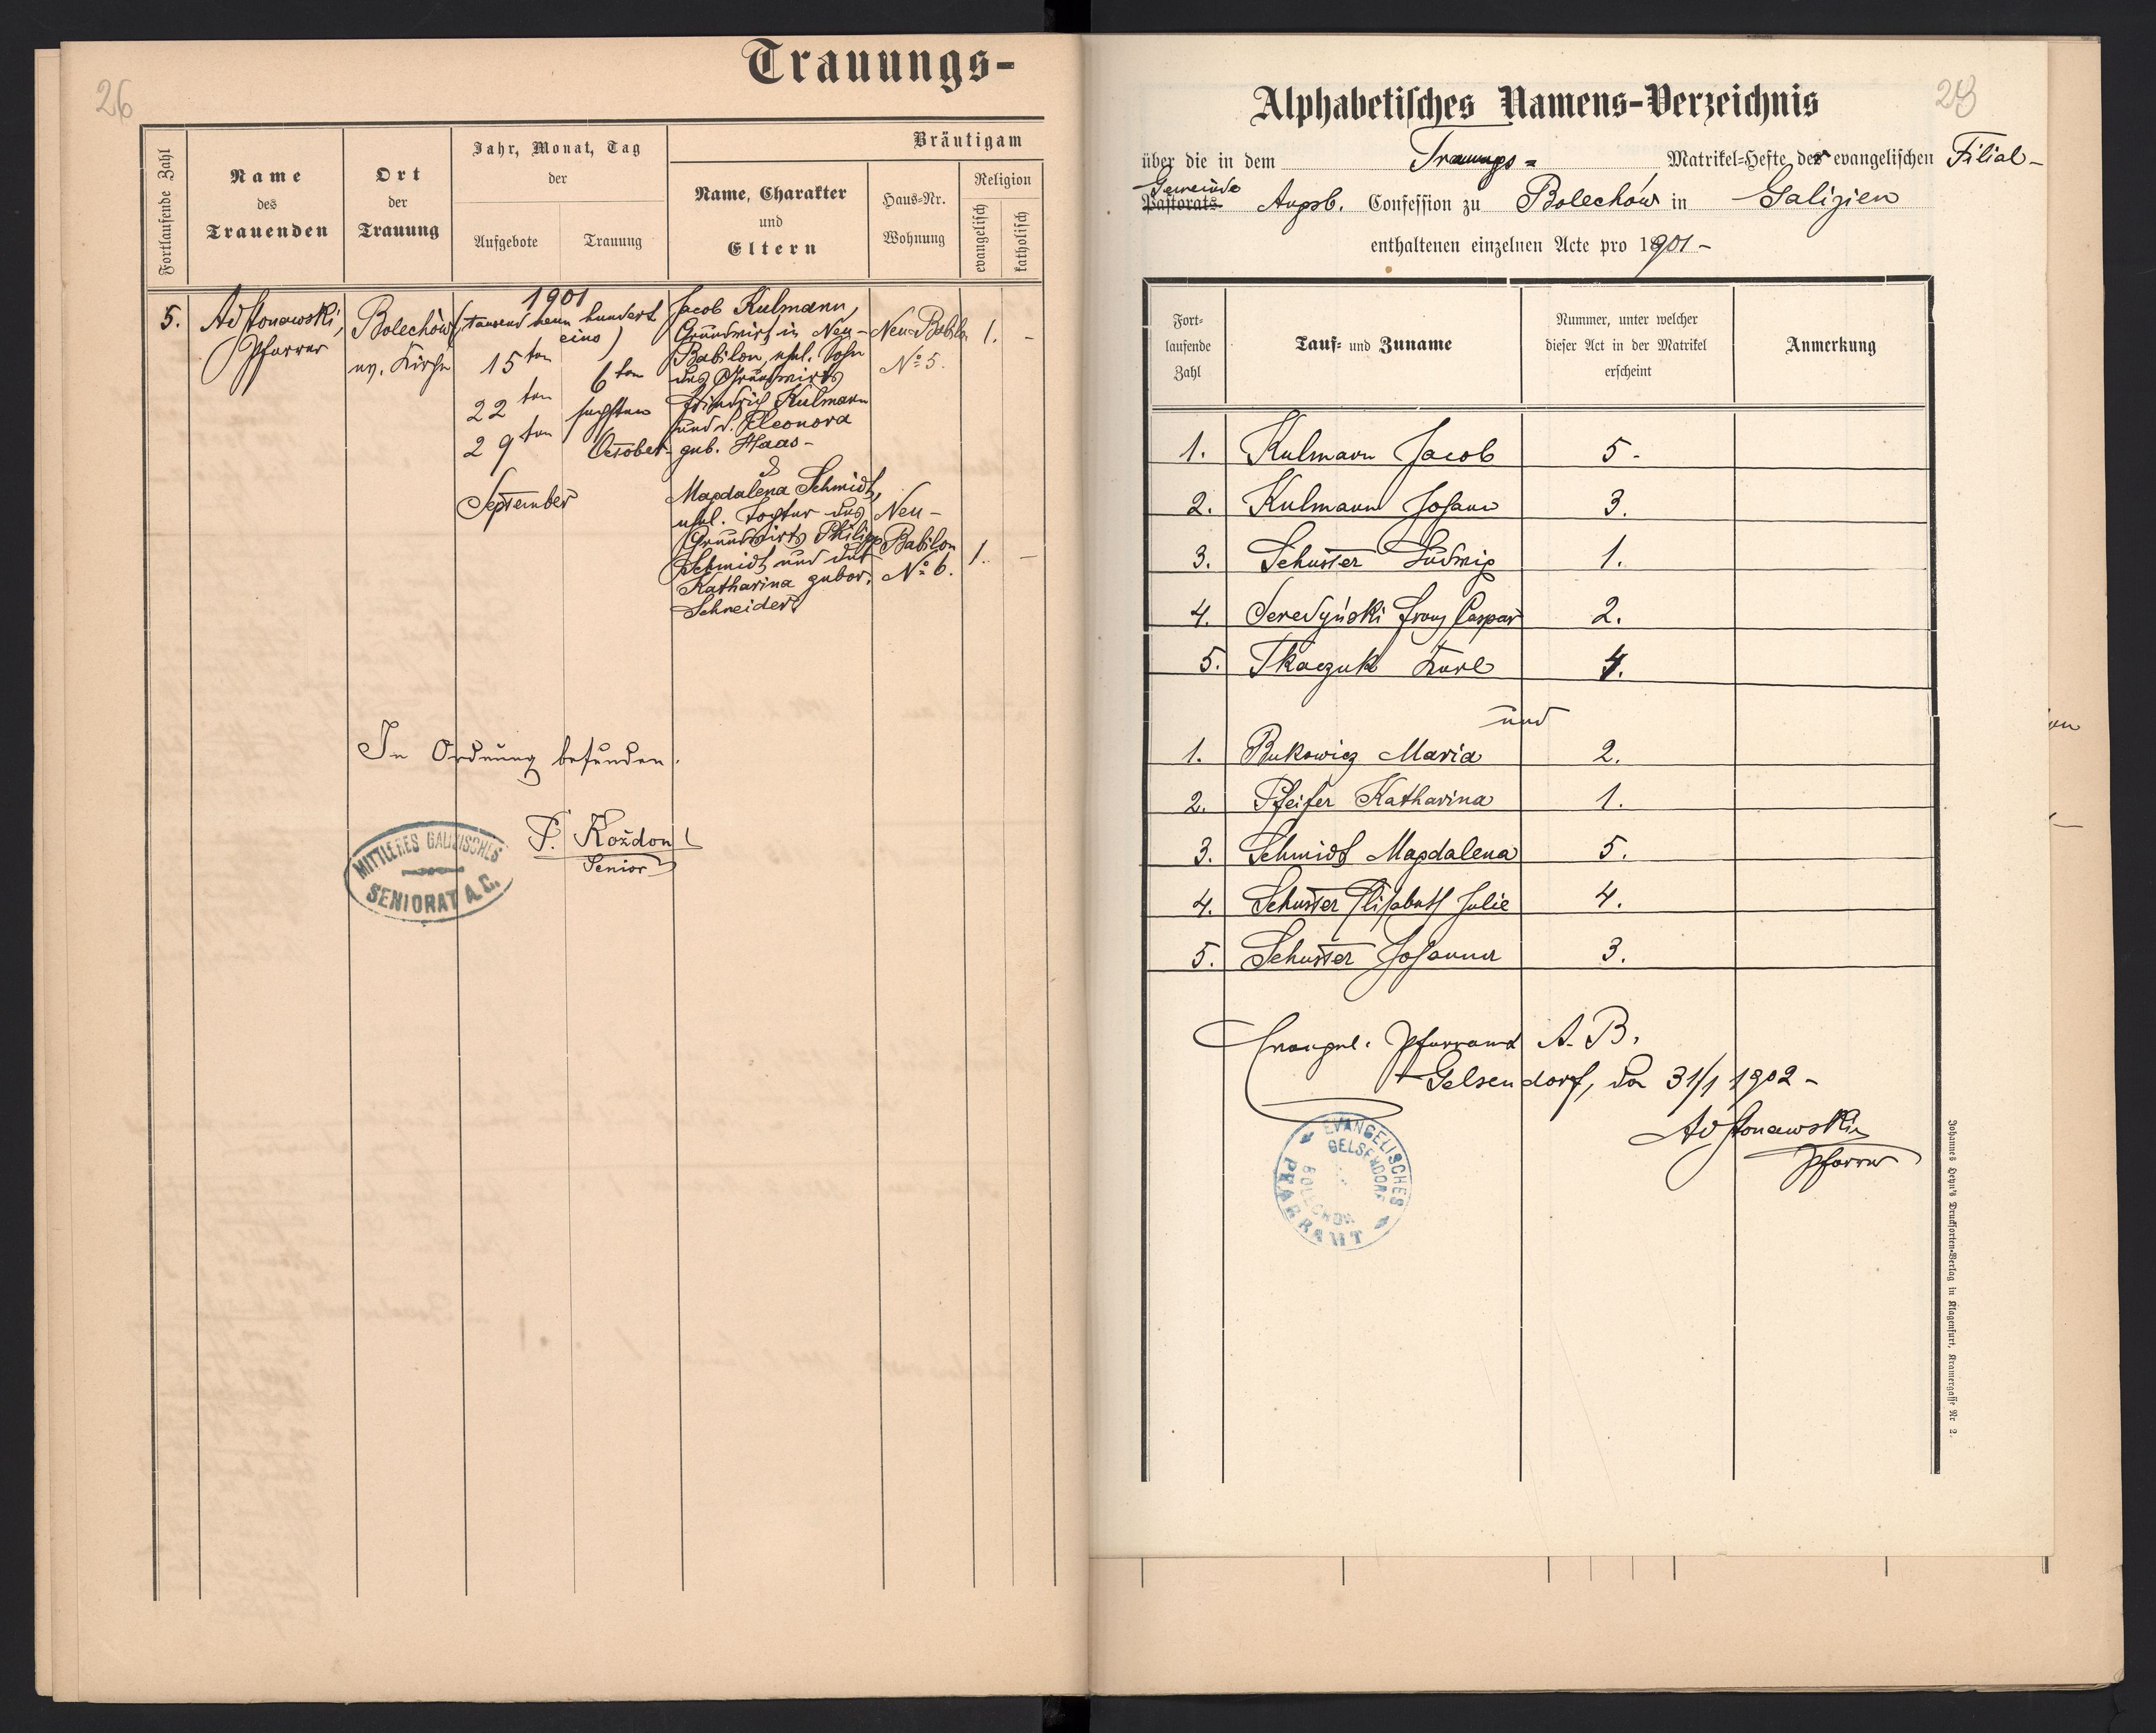 26
Trauungs-
Fortlaufende Zahl
Name
des
Trauenden
Ort
der
Trauung
Jahr, Monat, Tag
der
Aufgebote
Trauung
Bräutigam
Name, Charakter
und
Eltern
Haus-Nr.
Wohnung
Religion
evangelisch
katholisch
5.
Pfarrer
Bolechów
ev. Kirche
1901
(tausend neun hundert
eins)
15ten
22ten
29ten
September
6ten
sechsten
October
Jacob Kulmann,
Grundwirt in Neu-
Babilon, ehel. Sohn
des Grundwirts
Friedrich Kulmann
und d. Eleonora
geb. Haas-
&
Magdalena Schmidt,
ehel. Tochter des
Grundwirts Philipp
Schmidt und der
Katharina gebor.
Schneider
Neu-Babilon
No 5.
1. -
Neu-
Babilon
No 6.
1. -
In Ordnung befunden.
P. Kożdon
Senior
MITTLERES GALIZISCHES
SENIORAT A.C.
Alphabetisches Namens-Verzeichnis
über die in dem Trauungs= Matrikel-Hefte der evangelischen Filial-
Gemeinde
Pastorats Augsb. Confession zu Bolechów in Galizien
enthaltenen einzelnen Acte pro 1901-
Fort-
laufende
Zahl
Tauf- und Zuname
Nummer, unter welcher
dieser Act in der Matrikel
erscheint
Anmerkung
1. Kulmann Jacob 5-
2. Kulmann Johann 3.
3. Schuster Ludwig 1.
4. Seredyński Franz Caspar 2.
5. Tkaczuk Karl 4.
und
1. Bukowicz Maria 2.
2. Pfeifer Katharina 1.
3. Schmidt Magdalena 5.
4. Schuster Elisabeth Julie 4.
5. Schuster Johanna 3.
Evangel. Pfarramt A. B.
Gelsendorf, den 31/1 1902-
Pfarrer
EVANGELISCHES
PFARRAMT
GELSENDORF
BOLECHOW
Johannes Heyn's Drucksorten-Verlag in Klagenfurt, Kramergasse Nr 2.